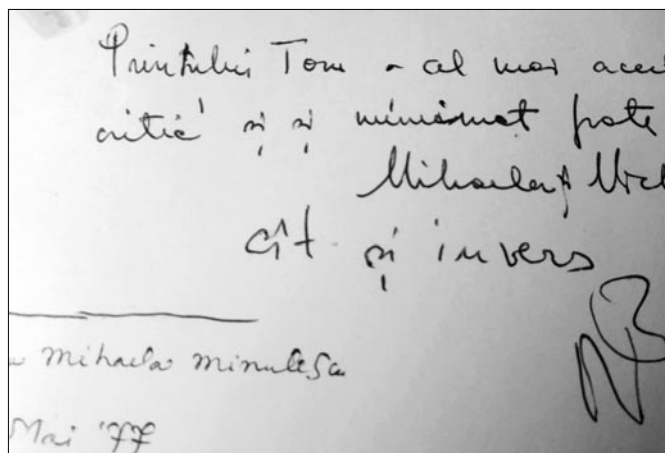 Prințului Tom - al mai
critic și și minunat frate
Mihaela
cît și invers
Mihaela Minulescu
Mai '77